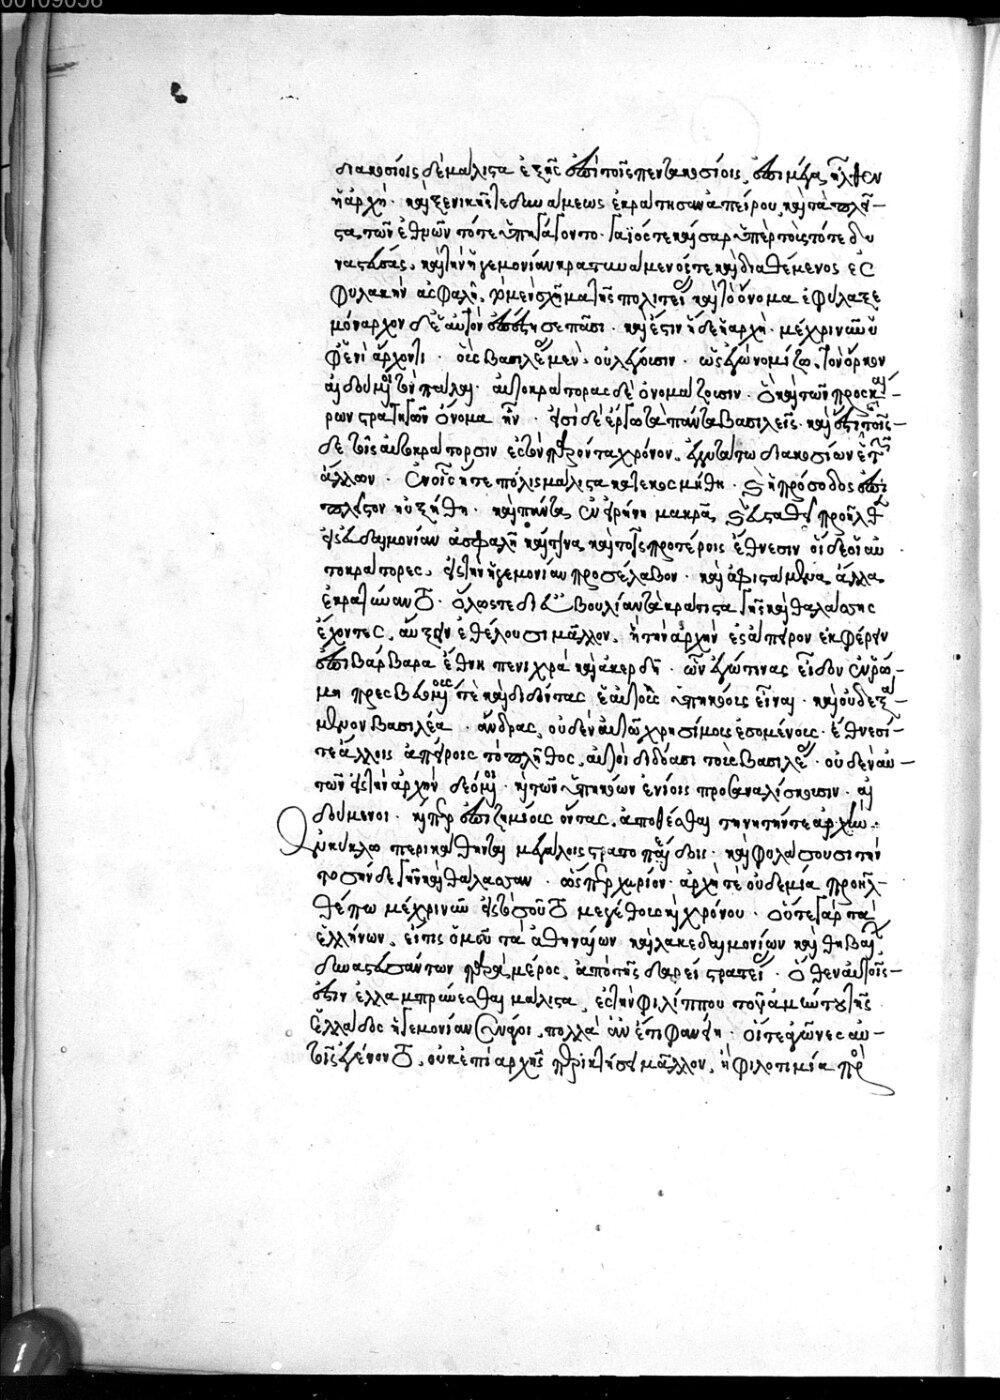 00109056
διακοσίοις δὲ μάλιστα ἑξῆς ἐπὶ τοῖς πεντακοσίοις, ἐπὶ μέγα ἦλθεν
ἡ ἀρχή· καὶ ξενικῆς τε δυνάμεως ἐκράτησαν ἀπείρου, καὶ τὰ πλεῖ-
στα τῶν ἐθνῶν τότε ὑπηγάγοντο· γάϊός τε καῖσαρ ὑπὲρ τοὺς τότε δυ
ναστεύσας, καὶ τὴν ἡγεμονίαν κρατυνάμενός τε καὶ διαθέμενος ἐς
φυλακὴν ἀσφαλῆ, τὸ μὲν σχῆμα τῆς πολιτείας καὶ τὸ ὄνομα ἐφύλαξε
μόναρχον δὲ ἑαυτὸν ἐπέστησε πᾶσι· καὶ ἔστιν ἥδε ἡ ἀρχὴ μέχρι νῦν ὑ
φ' ἑνὶ ἄρχοντι· οὓς βασιλέας μὲν οὐ λέγουσιν· ὡς ἐγὼ νομίζω, τὸν ὅρκον
αἰδούμενοι τὸν πάλαι· αὐτοκράτορας δὲ ὀνομάζουσιν· ὃ καὶ τῶν προσκαί-
ρων στρατηγῶν ὄνομα ἦν· εἰσὶ δὲ ἔργῳ τὰ πάντα βασιλεῖς· καὶ ἔστι τοῖς-
δε τοῖς αὐτοκράτορσιν ἐς τὸν παρόντα χρόνον, ἐγγυτάτω διακοσίων ἐτῶν
ἄλλων· ἐν οἷς ἥ τε πόλις μάλιστα κατεκοσμήθη· καὶ ἡ πρόσοδος ἐπὶ
πλεῖστον ηὐξήθη· καὶ πάντα ἐν εἰρήνη μακρᾶ, καὶ εὐσταθεῖ προῆλθεν
εἰς εὐδαιμονίαν ἀσφαλῆ καί τινα καὶ τοῖς προτέροις ἔθνεσιν οἵδε οἱ αὐ
τοκράτορες, εἰς τὴν ἡγεμονίαν προσέλαβον· καὶ ἀφιστάμενα ἄλλα
ἐκρατύναντο· ὅλως τε δι' εὐβουλίαν τὰ κράτιστα γῆς καὶ θαλάσσης
ἔχοντες, αὔξειν ἐθέλουσι μᾶλλον, ἢ τὴν ἀρχὴν ἐς ἄπειρον ἐκφέρειν
ἐπὶ βάρβαρα ἔθνη πενιχρὰ καὶ ἀκερδῆ· ὧν ἐγώ τινας εἶδον ἐν ῥώ-
μη πρεσβευομένους τε καὶ διδόντας ἑαυτοὺς ὑπηκόους εἶναι· καὶ οὐ δεξά
μενον βασιλέα· ἄνδρας, οὐδὲν αὐτῶ χρησίμους ἐσομένους· ἔθνεσί-
τε ἄλλοις ἀπείροις τὸ πλῆθος, αὐτοὶ διδόασι τοὺς βασιλέας· οὐδὲν αὐ-
τῶν εἰς τὴν ἀρχὴν δεόμενοι· καὶ τῶν ὑπηκόων ἐνίοις προσαναλίσκουσιν· αἰ
δούμενοι· καίπερ ἐπιζημίους ὄντας, ἀποθέσθαι τήν τε ἀρχὴν·
ἐν κύκλω περικάθηνται μεγάλοις στρατοπέδοις· καὶ φυλάσσουσι τὴν
τοσήνδε γῆν καὶ θάλασσαν· ὥσπερ χωρίον· ἀρχή τε οὐδεμία προῆλ-
θέ πω μέχρι νῦν εἰς τοσοῦτο μεγέθους καὶ χρόνου· οὔτε γὰρ τὰ
ἑλλήνων, εἴ τις ὁμοῦ τὰ ἀθηναίων καὶ λακεδαιμονίων καὶ θηβαίων
δυναστευσάντων παρὰ μέρος, ἀπὸ τῆς δαρείου στρατείας· ὅθεν αὐτοῖς-
ἐστιν ἐλλαμπρύνεσθαι μάλιστα, ἐς τὴν φιλίππου τοῦ ἀμύντου τῆς
ἑλλάδος ἡγεμονίαν συνάγοι, πολλὰ ἂν ἔτι φανείη· οἵ τε ἀγῶνες αὐ-
τοῖς ἐγένοντο, οὐκ ἐπὶ ἀρχῆς περικτήσει μᾶλλον, ἢ φιλοτιμία πρὸς